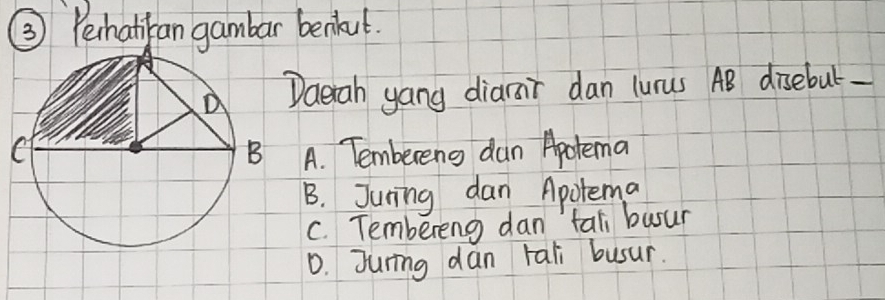 ③ Perhatikan gambar berikut.
A
D
C
B
Daerah yang diarsir dan lurus AB disebut -
A. Tembereng dan Apotema
B. Juring dan Apotema
C. Tembereng dan tali busur
D. Juring dan tali busur.